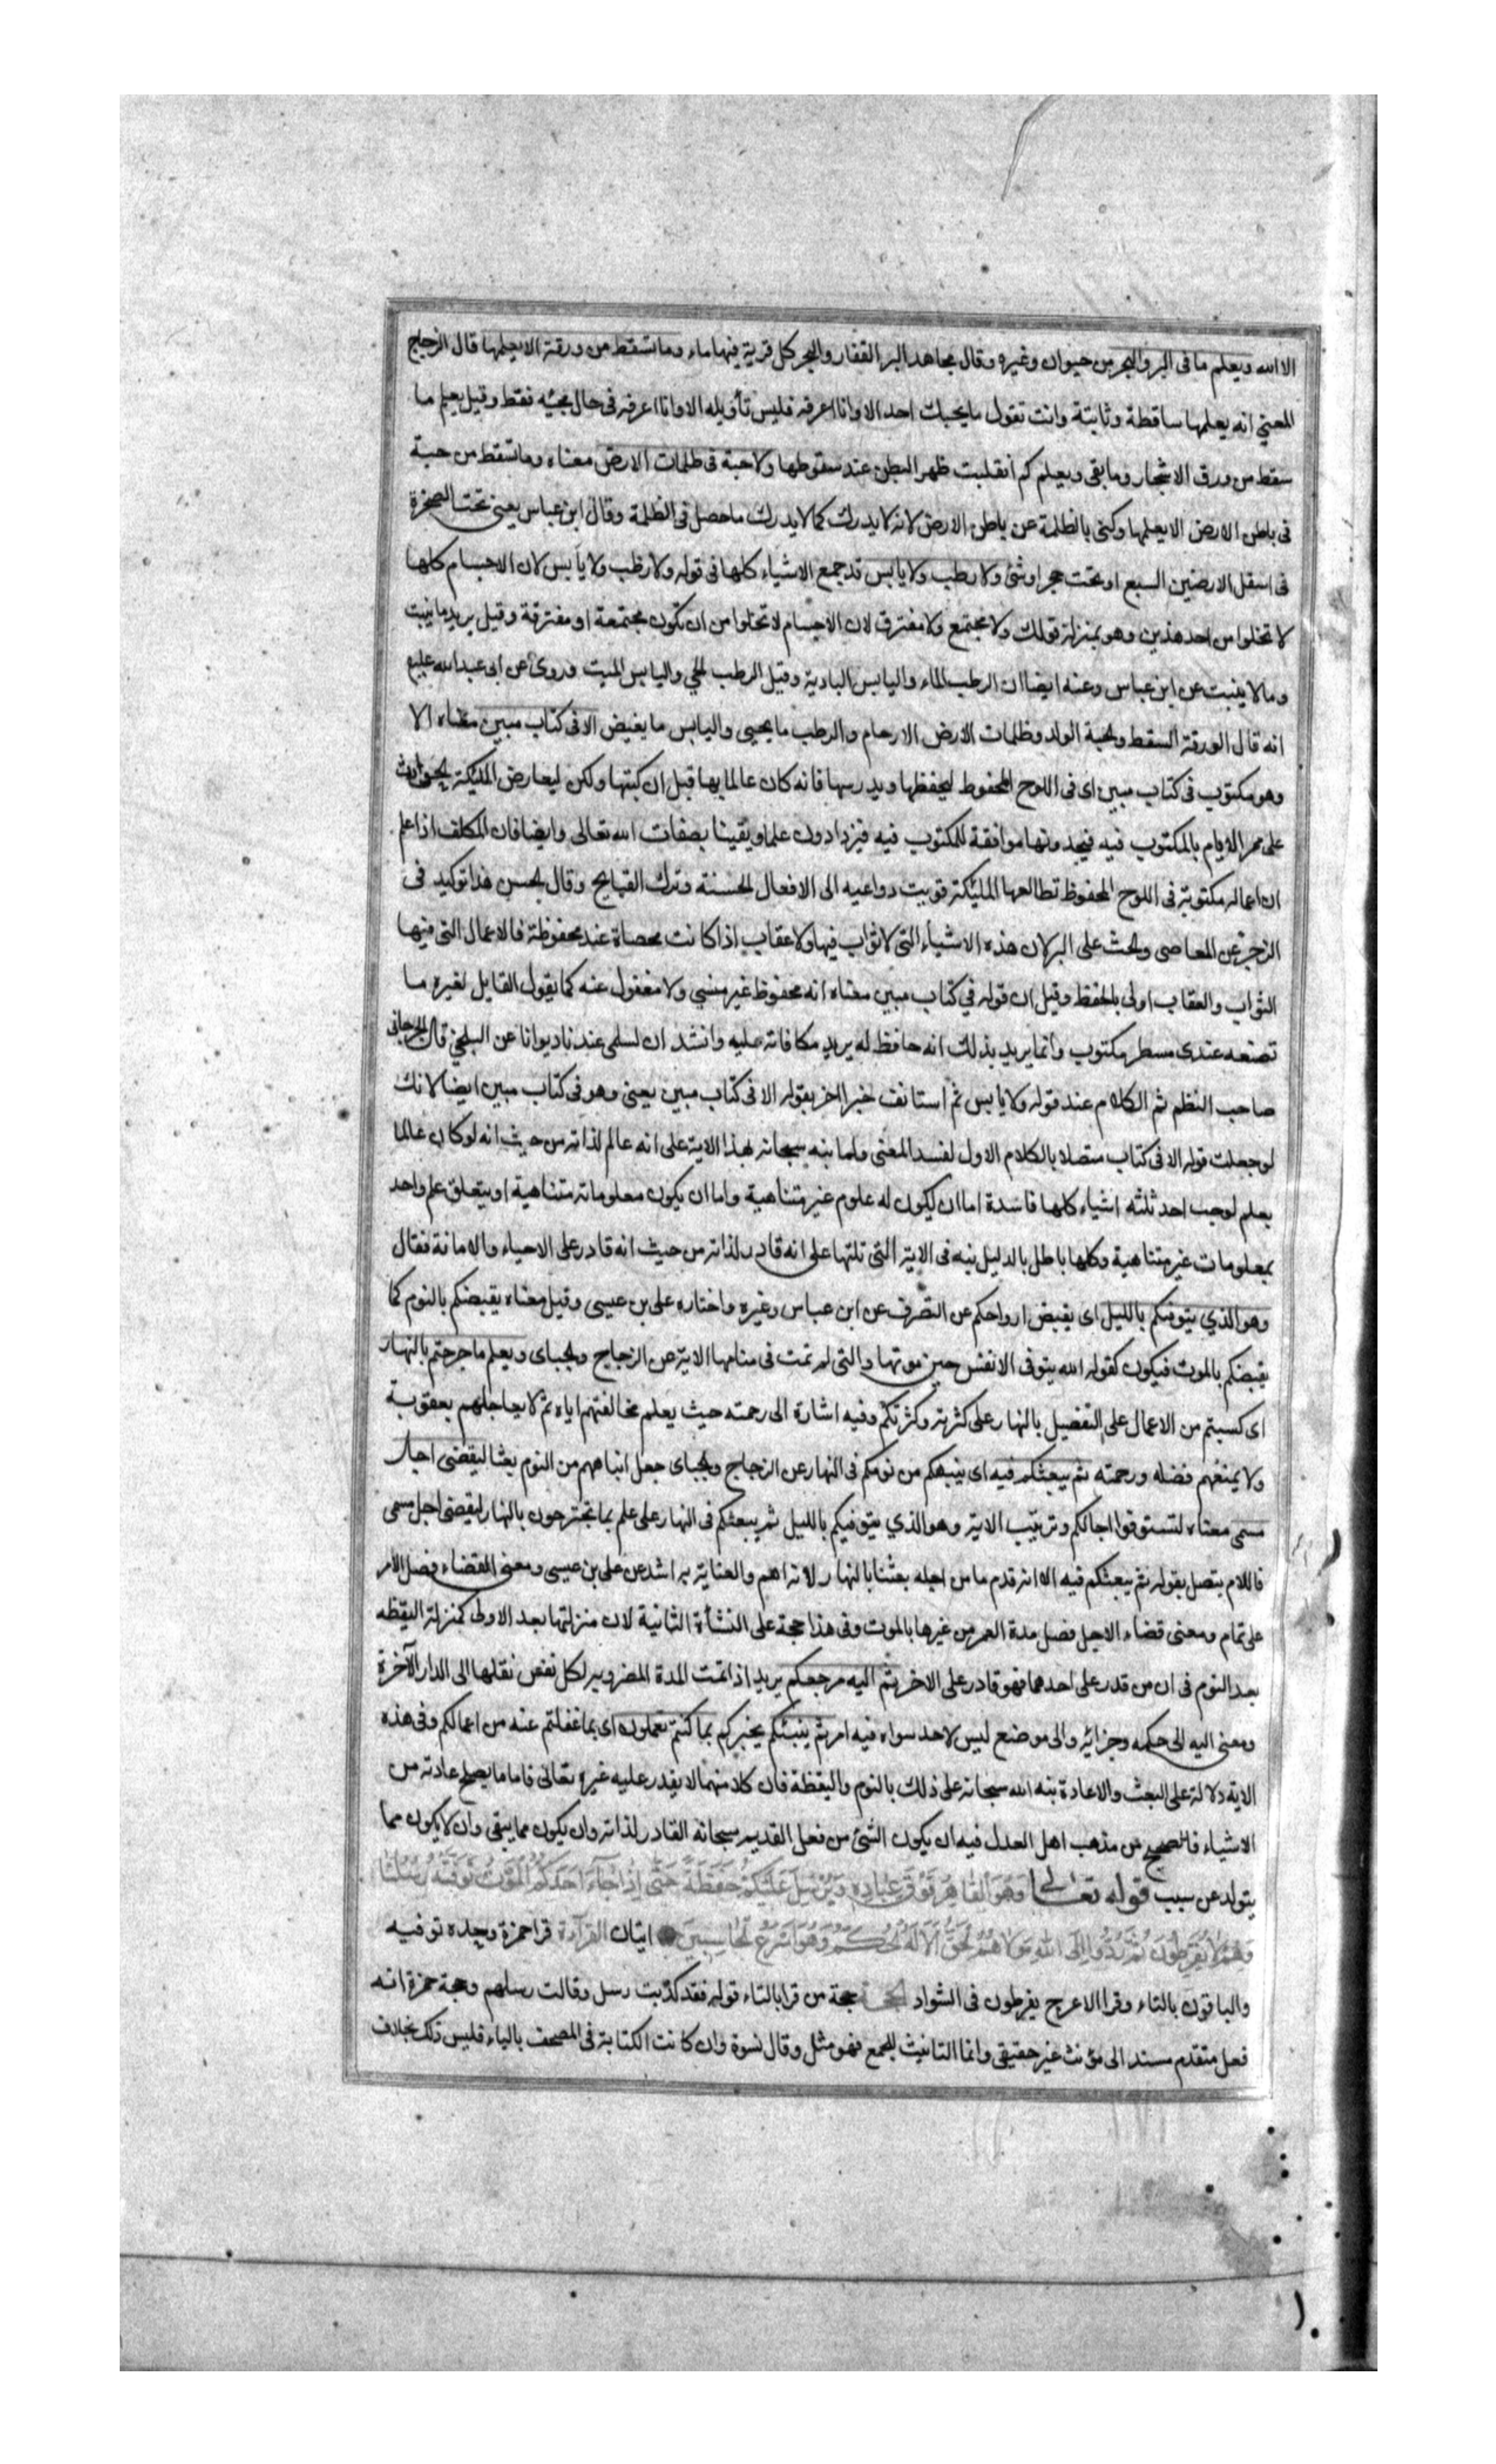 الا الله ويعلم ما فى البر والبحر من حيوان وغيره وقال مجاهد البر القفار والبحر كل قرية فيها ماء وما تسقط من ورقة الا يعلمها قال الزجاج
المعنى انه يعلمها ساقطة وثابتة وانت تقول ما يجيك احد الا وانا اعرفه فليس تأويله الا وانا اعرفه فى حال مجيئه فقط وقيل يعلم ما
سقط من ورق الاشجار وما بقى ويعلم كم انقلبت ظهر البطن عند سقوطها ولا حبة فى ظلمات الارض معناه وما تسقط من حبة
فى باطن الارض الا يعلمها وكنى بالظلمة عن باطن الارض لانه لا يدرك كما لا يدرك ما حصل فى الظلمة وقال ابن عباس يعنى تحت الصخرة
فى اسفل الارضين السبع او تحت حجر او شئ ولا رطب ولا يابس قد جمع الاشياء كلها فى قوله ولا رطب ولا يابس لان الاجسام كلها
لا تخلوا من احد هذين وهو بمنزلة قولك ولا مجتمع ولا مفترق لان الاجسام لا تخلوا من ان تكون مجتمعة او مفترقة وقيل يريد ما ينبت
وما لا ينبت عن ابن عباس وعنه ايضا ان الرطب الماء واليابس البادية وقيل الرطب الحي واليابس الميت وروى عن ابى عبدالله عليه
انه قال الورقة السقط والحبة الولد وظلمات الارض الارحام والرطب ما يحيى واليابس ما يغيض الا فى كتاب مبين معناه الا
وهو مكتوب فى كتاب مبين اى فى اللوح المحفوظ ليحفظها ويدرسها فانه كان عالما بها قبل ان كتبها ولكن ليعارض الملئكة بحوادث
على ممر الايام بالمكتوب فيه فيجدونها موافقة للمكتوب فيه فيزدادون علما ويقينا بصفات الله تعالى وايضا فان المكلف اذا علم
ان اعماله مكتوبة فى اللوح المحفوظ تطالعها الملئكة قويت دواعيه الى الافعال الحسنة وترك القبايح وقال الحسن هذا توكيد فى
الزجر عن المعاصى والحث على البر لان هذه الاشياء التى لا ثواب فيها ولا عقاب اذا كانت محصاة عنده محفوظة فالاعمال التى فيها
الثواب والعقاب اولى بالحفظ وقيل ان قوله في كتاب مبين معناه انه محفوظ غير منسي ولا مغفول عنه كما يقول القايل لغيره ما
تصنعه عندى مسطر مكتوب وانما يريد بذلك انه حافظ له يريد مكافاته عليه وانشد ان لسلمى عندنا ديوانا عن البلخي قال الجرجانى
صاحب النظم ثم الكلام عند قوله ولا يابس ثم استانف خبرا اخر بقوله الا فى كتاب مبين يعنى وهو فى كتاب مبين ايضا لانك
لو جعلت قوله الا فى كتاب متصلا بالكلام الاول لفسد المعنى ولما بنه سبحانه بهذا الاية على انه عالم لذاته من حيث انه لو كان عالما
بعلم لوجب احد ثلثه اشياء كلها فاسدة اما ان يكون له علوم غير متناهية واما ان يكون معلوماته متناهية او يتعلق علم واحد
بمعلومات غير متناهية وكلها باطل بالدليل نبه فى الاية التى تلتها على انه قادر لذاته من حيث انه قادر على الاحياء والاماتة فقال
وهو الذي يتوفيكم بالليل اى يقبض ارواحكم عن التصرف عن ابن عباس وغيره واختاره على بن عيسى وقيل معناه يقبضكم بالنوم كما
يقبضكم بالموت فيكون كقوله الله يتوفى الانفس حين موتها والتى لم تمت فى منامها الاية عن الزجاج والجباى ويعلم ما جرحتم بالنهار
اى كسبتم من الاعمال على التفصيل بالنهار على كثرته وكثرتكم وفيه اشارة الى رحمته حيث يعلم مخالفتهم اياه ثم لا يعاجلهم بعقوبة
ولا يمنعهم فضله ورحمته ثم يبعثكم فيه اى ينبهكم من نومكم فى النهار عن الزجاج والجباى جعل انتباههم من النوم بعثا ليقضى اجل
مسمى معناه لتستوفوا اجالكم وترتيب الاية وهو الذي يتوفيكم بالليل ثم يبعثكم فى النهار على علم بما تجترحون بالنهار ليقضى اجل مسمى
فاللام يتصل بقوله ثم يبعثكم فيه الا انه قدم ما من اجله بعثنا بالنهار لانه اهم والعناية به اشد عن على بن عيسى ومعنى القضاء فصل الامر
على تمام ومعنى قضاء الاجل فصل مدة العمر من غيرها بالموت وفى هذا حجة على النشأة الثانية لان منزلتها بعد الاولى كمنزلة اليقظه
بعد النوم فى ان من قدر على احدهما فهو قادر على الاخر ثم اليه مرجعكم يريد اذا تمت المدة المضروبة لكل نفس نقلها الى الدار الآخرة
ومعنى اليه الى حكمه وجزائه والى موضع ليس لاحد سواه فيه امر ثم ينبئكم يخبركم بما كنتم تعملون اى بما غفلتم عنه من اعمالكم وفى هذه
الاية دلالة على البعث والاعادة بنه الله سبحانه على ذلك بالنوم واليقظة فان كلا منهما لا يقدر عليه غيره تعالى فاما ما يصح عادته من
الاشياء فالصحيح من مذهب اهل العدل فيه ان يكون الشئ من فعل القديم سبحانه القادر لذاته وان يكون مما يبقى وان لا يكون مما
يتولد عن سبب قوله تعالى وَهُوَ الْقَاهِرُ فَوْقَ عِبَادِهِ وَيُرْسِلُ عَلَيْكُمْ حَفَظَةً حَتَّى إِذَا جَاءَ أَحَدَكُمُ الْمَوْتُ تَوَفَّتْهُ رُسُلُنَا
وَهُمْ لَا يُفَرِّطُونَ ثُمَّ رُدُّوا إِلَى اللهِ مَوْلَاهُمُ الْحَقِّ أَلَا لَهُ الْحُكْمُ وَهُوَ أَسْرَعُ الْحَاسِبِينَ ايتان القراءة قرا حمزة وحده توفيه
والباقون بالتاء وقرا الاعرج يفرطون فى الشواد الحجة حجة من قرا بالتاء قوله فقد كذبت رسل وقالت رسلهم وحجة حمزة انه
فعل متقدم مسند الى مؤنث غير حقيقى وانما التانيث للجمع فهو مثل وقال نسوة وان كانت الكتابة فى المصحف بالياء فليس ذلك بخلاف